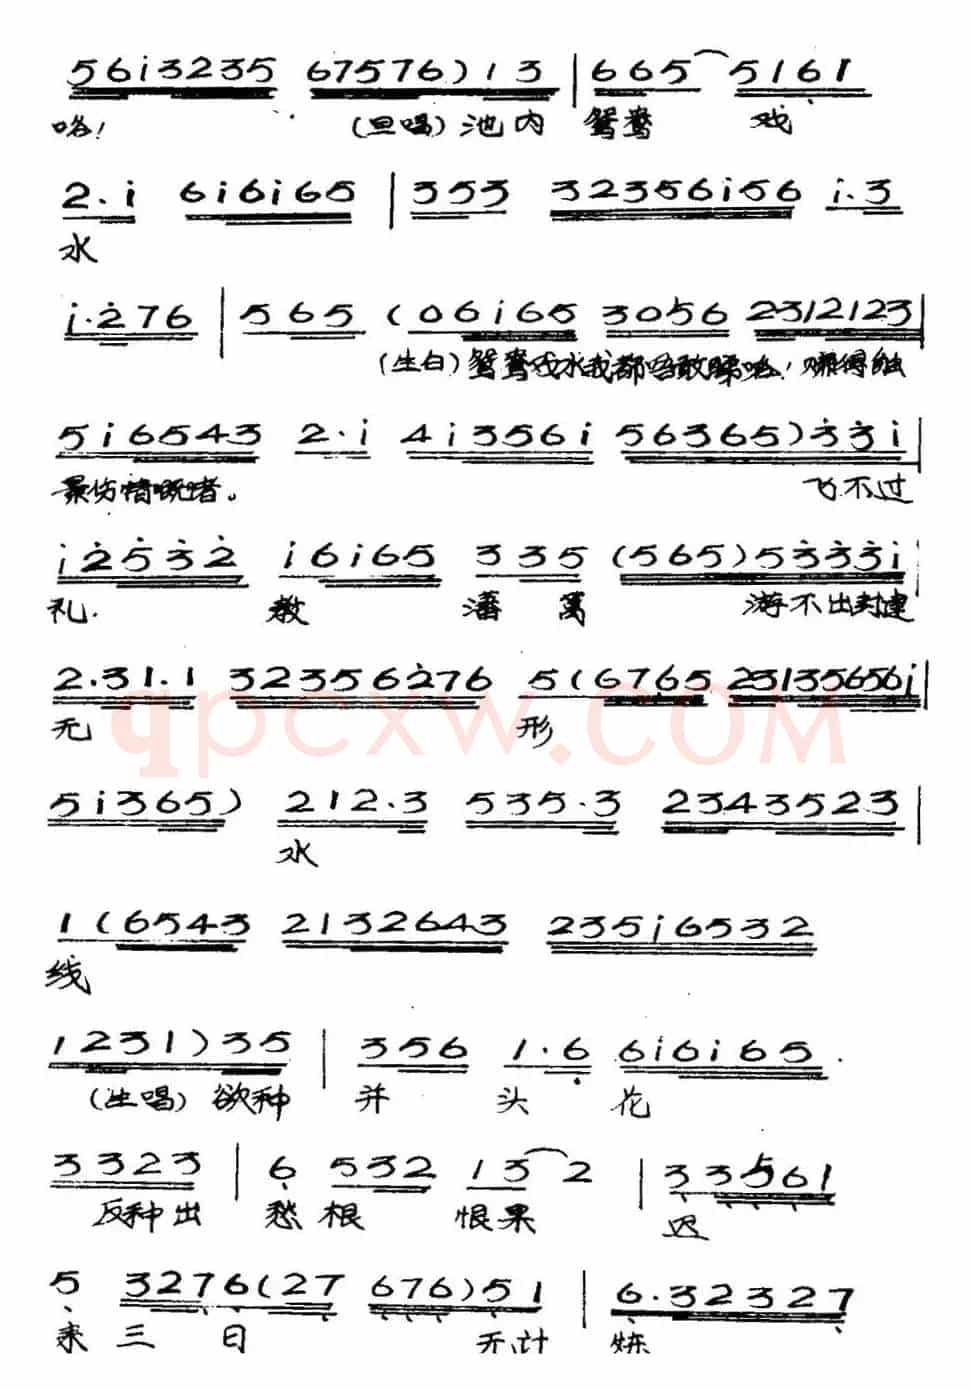 5613235 67576)13 | 665 5161
咯! (旦唱)池内 鸳鸯 戏
2.i 6i6i65 | 353 32356i56 i.3
水
i.276 | 565 (06i65 3056 2312123 |
(生白)鸳鸯戏水我都唔敢睇咯!
5i6543 2.i 4i356i 56365)33i |
最伤情嘅啫。 飞不过
i2532 i6i65 335 (565)5333i
礼. 教 藩篱 游不出封建
2.31.1 32356276 5(6765 231356 56i |
无 形
qpcxw.COM
5i365) 212.3 535.3 2343523 |
水
1(6543 2132643 235i6532
线
1231)35 | 356 1.6 6i6i65.
(生唱)欲种 并 头 花
3323 | 6 532 13 2 | 33561
反种出 愁根 恨果 迟
5 3276(27 676)51 | 6.32327
来 三 日 无计